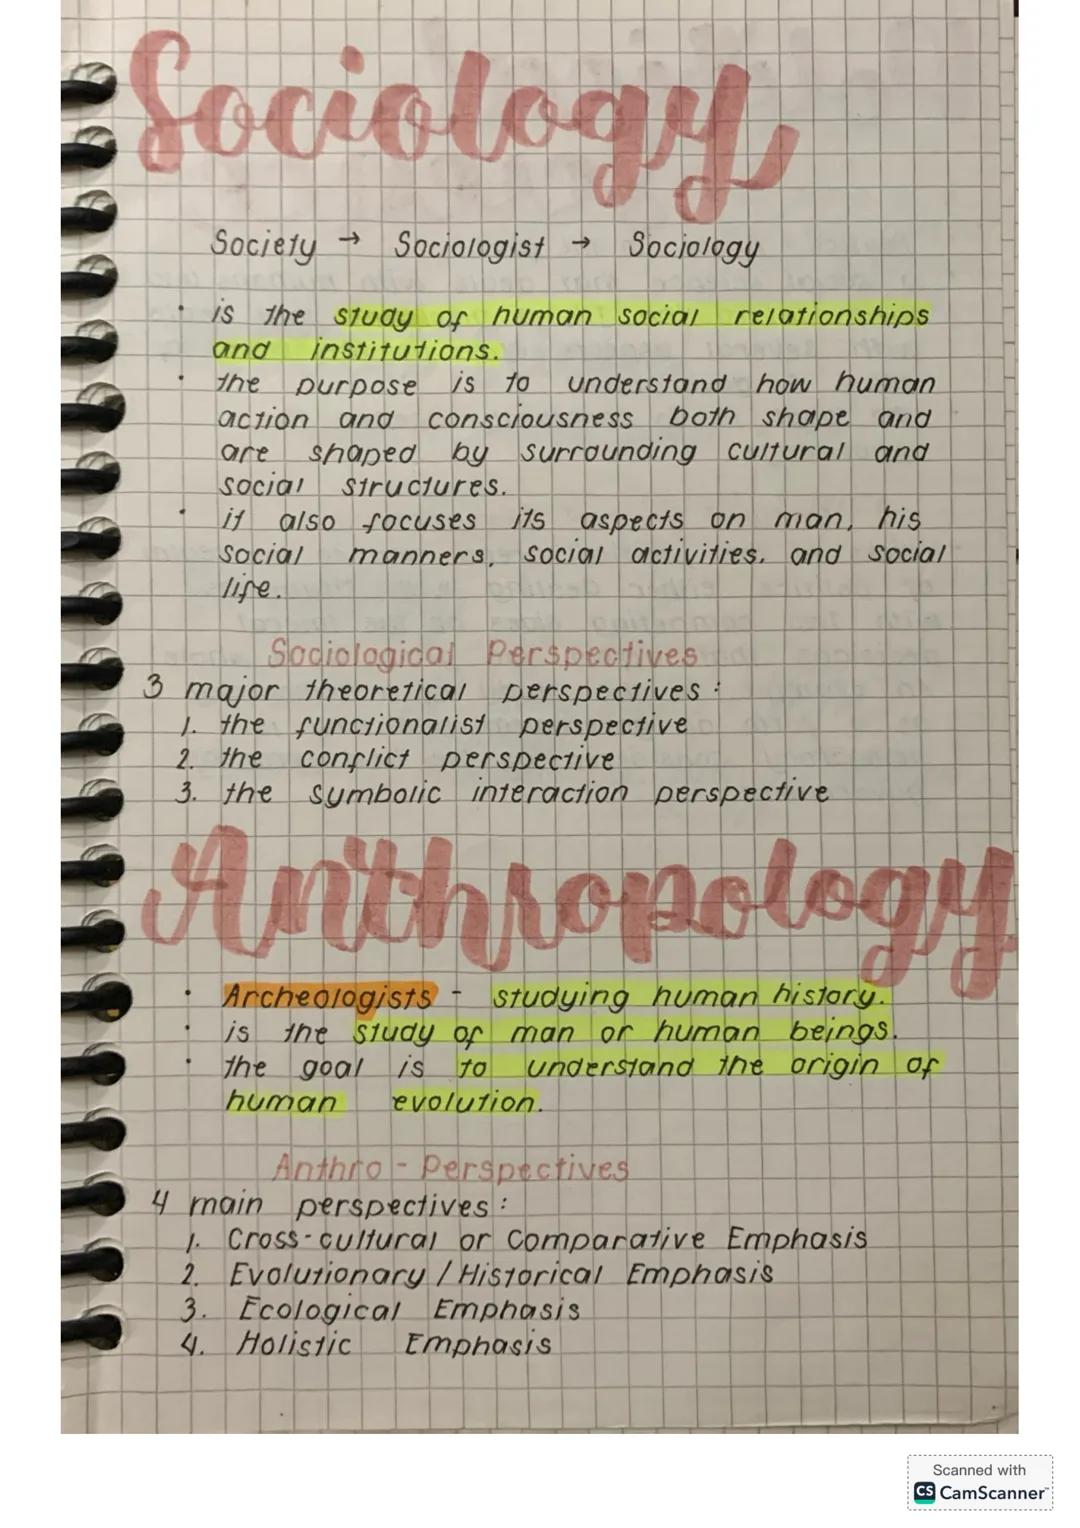 Sociology
Society → Sociologist → Sociology
• is the study of human social relationships
and institutions.
• the purpose is to understand how human
action and consciousness both shape and
are shaped by surrounding cultural and
social structures.
• it also focuses its aspects on man, his
social manners, social activities, and social
life.
Sociological Perspectives
3 major theoretical perspectives:
1. the functionalist perspective
2. the conflict perspective
3. the symbolic interaction perspective
Anthropology
• Archeologists - studying human history.
• is the study of man or human beings.
• the goal is to understand the origin of
human evolution.
Anthro - Perspectives
4 main perspectives:
1. Cross-cultural or Comparative Emphasis
2. Evolutionary / Historical Emphasis
3. Ecological Emphasis
4. Holistic Emphasis
Scanned with
CS CamScanner